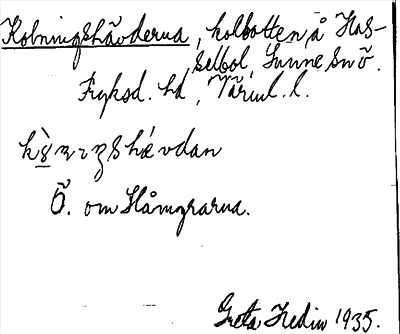 Kolningshåvderna, kolbotten å Has-
selbol, Sunne sn Ö.
Fryksd. hd, Värml. l.
Ö. om Håmgrarna.
Greta Hedin 1935.